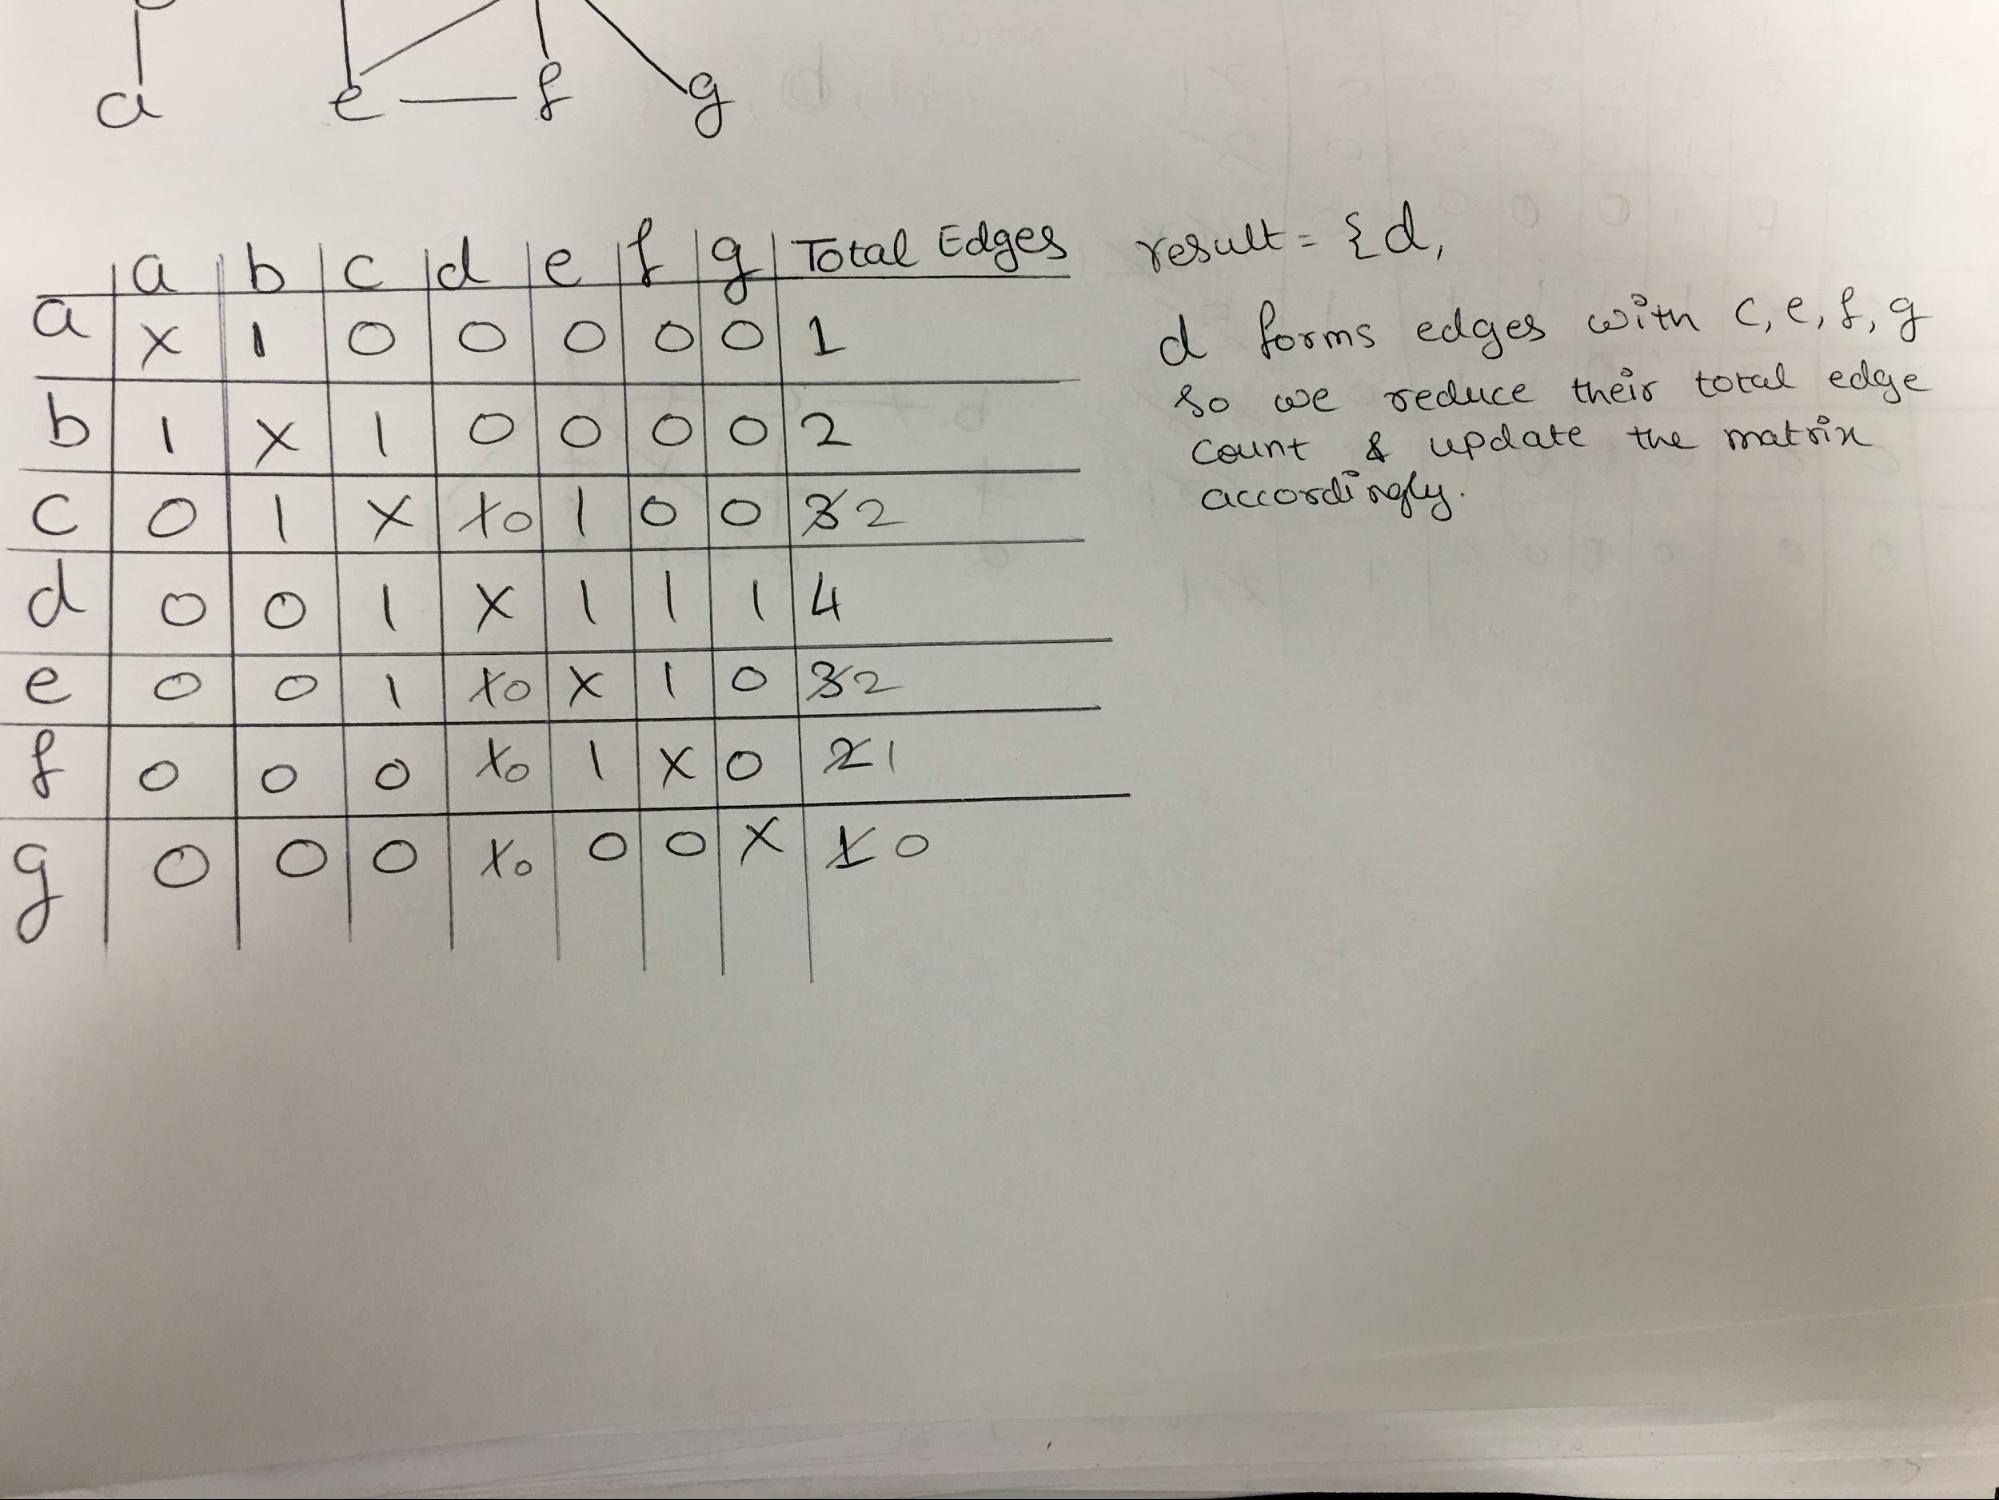 a e f g
a b c d e f g Total Edges
a x 1 0 0 0 0 0 1
b 1 x 1 0 0 0 0 2
c 0 1 x 1 0 1 0 0 3 2
d 0 0 1 x 1 1 1 4
e 0 0 1 1 0 x 1 0 3 2
f 0 0 0 1 0 1 x 0 2 1
g 0 0 0 1 0 0 0 x 1 0
result = {d,
d forms edges with c, e, f, g
so we reduce their total edge
count & update the matrix
accordingly.